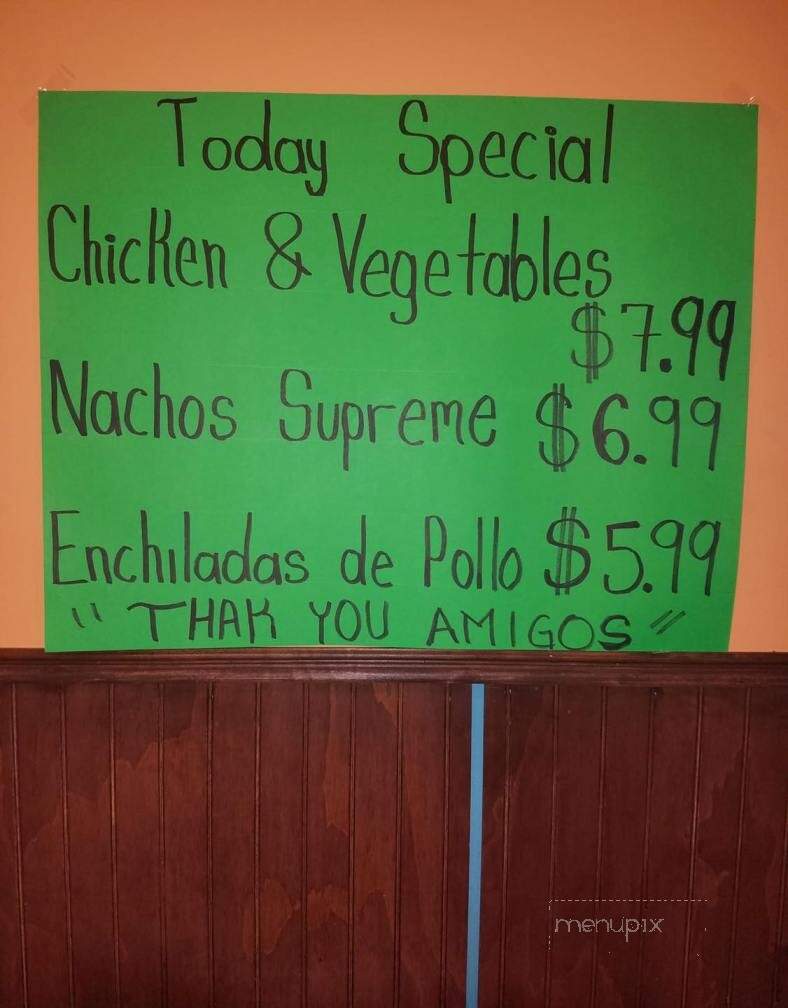 Today Special
Chicken & Vegetables
$7.99
Nachos Supreme $6.99
Enchiladas de Pollo $5.99
"THAK YOU AMIGOS"
menupix